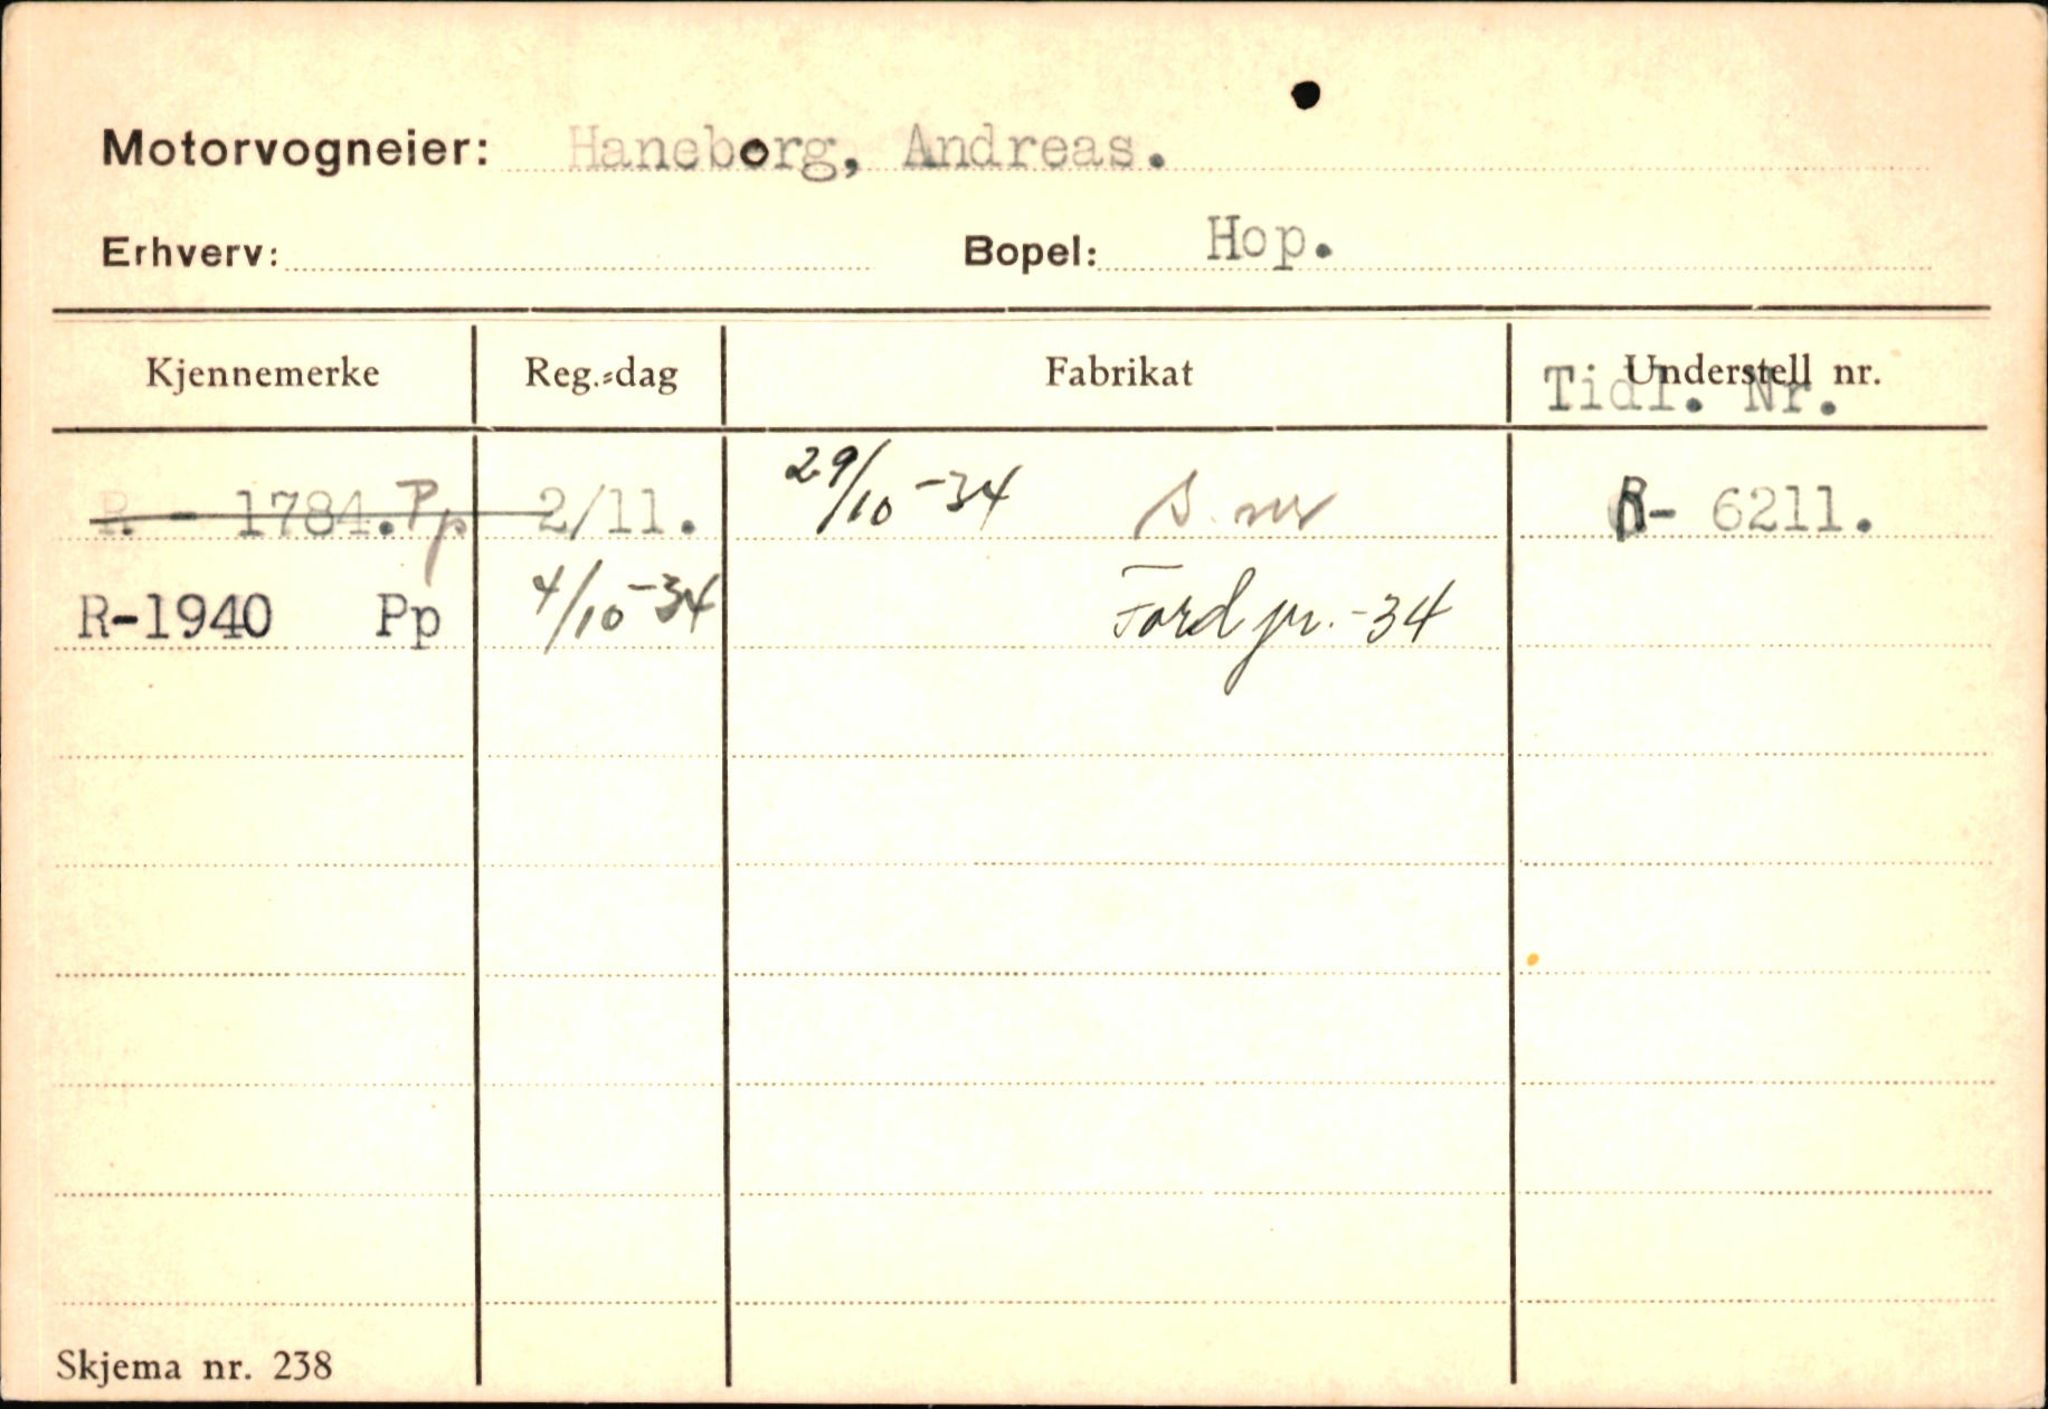 Motorvogneier: Haneborg, Andreas.
Erhverv: Bopel: Hop.
Kjennemerke Reg.-dag Fabrikat Understell nr.
Tidl. Nr.
R - 1784. Pp 2/11. 29/10 -34 R- 6211.
R-1940 Pp 4/10 -34 Ford pr. -34
Skjema nr. 238